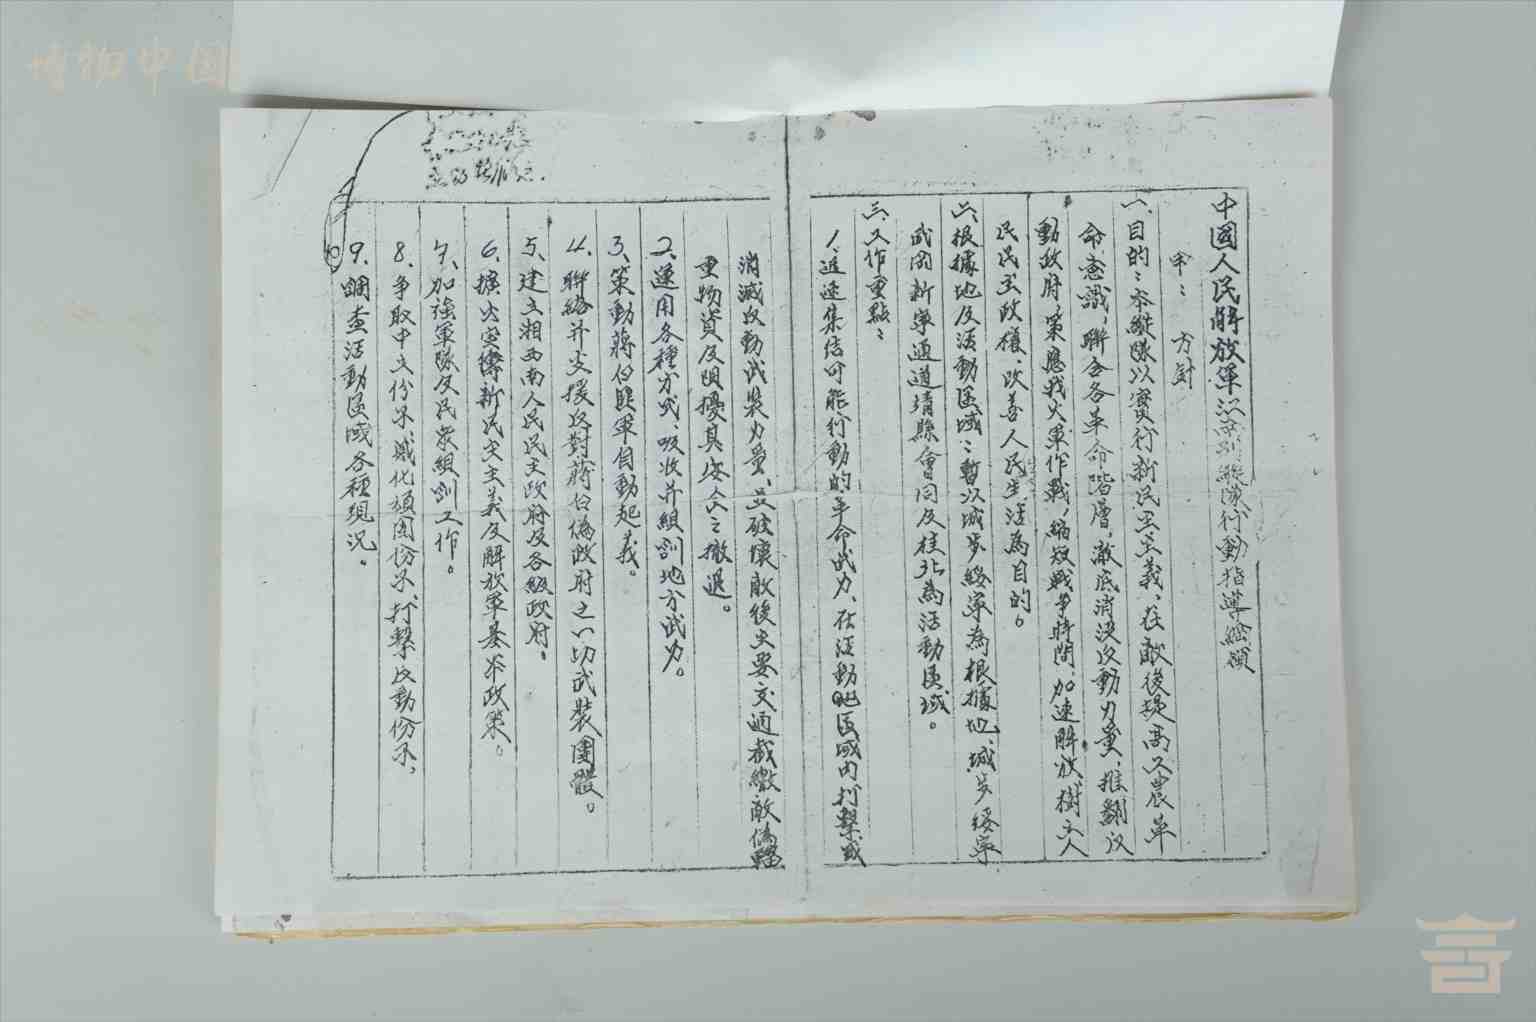 博物中国
中國人民解放軍江南縱隊行動指導綱領
甲：方針
一、目的：本縱隊以實行新民主主義、在敵後提高工農革
命意識，聯合各革命階層，澈底消沒反動力量，推翻反
動政府，策應我大軍作戰，縮短戰爭時間，加速解放，樹立人
民民主政權，改善人民生活為目的。
二、根據地及活動區域：暫以城步綏寧為根據地、城步綏寧
武岡新寧通道靖縣會同及桂北為活動區域。
三、工作重點：
1、迅速集結可能行動的革命武力、在活動地區域內打擊或
消滅反動武裝力量、并破壞敵後主要交通截繳敵偽輜
重物資及阻擾其安全之撤退。
2、運用各種方式、吸收并組訓地方武力。
3、策動蔣白匪軍自動起義。
4、聯絡并支援反對蔣白偽政府之一切武裝團體。
5、建立湘西南人民民主政府及各級政府。
6、擴大宣傳新民主主義及解放軍基本政策。
7、加強軍隊及民眾組訓工作。
8、爭取中立份子、感化頑固份子、打擊反動份子，
9、調查活動區域各種現況。